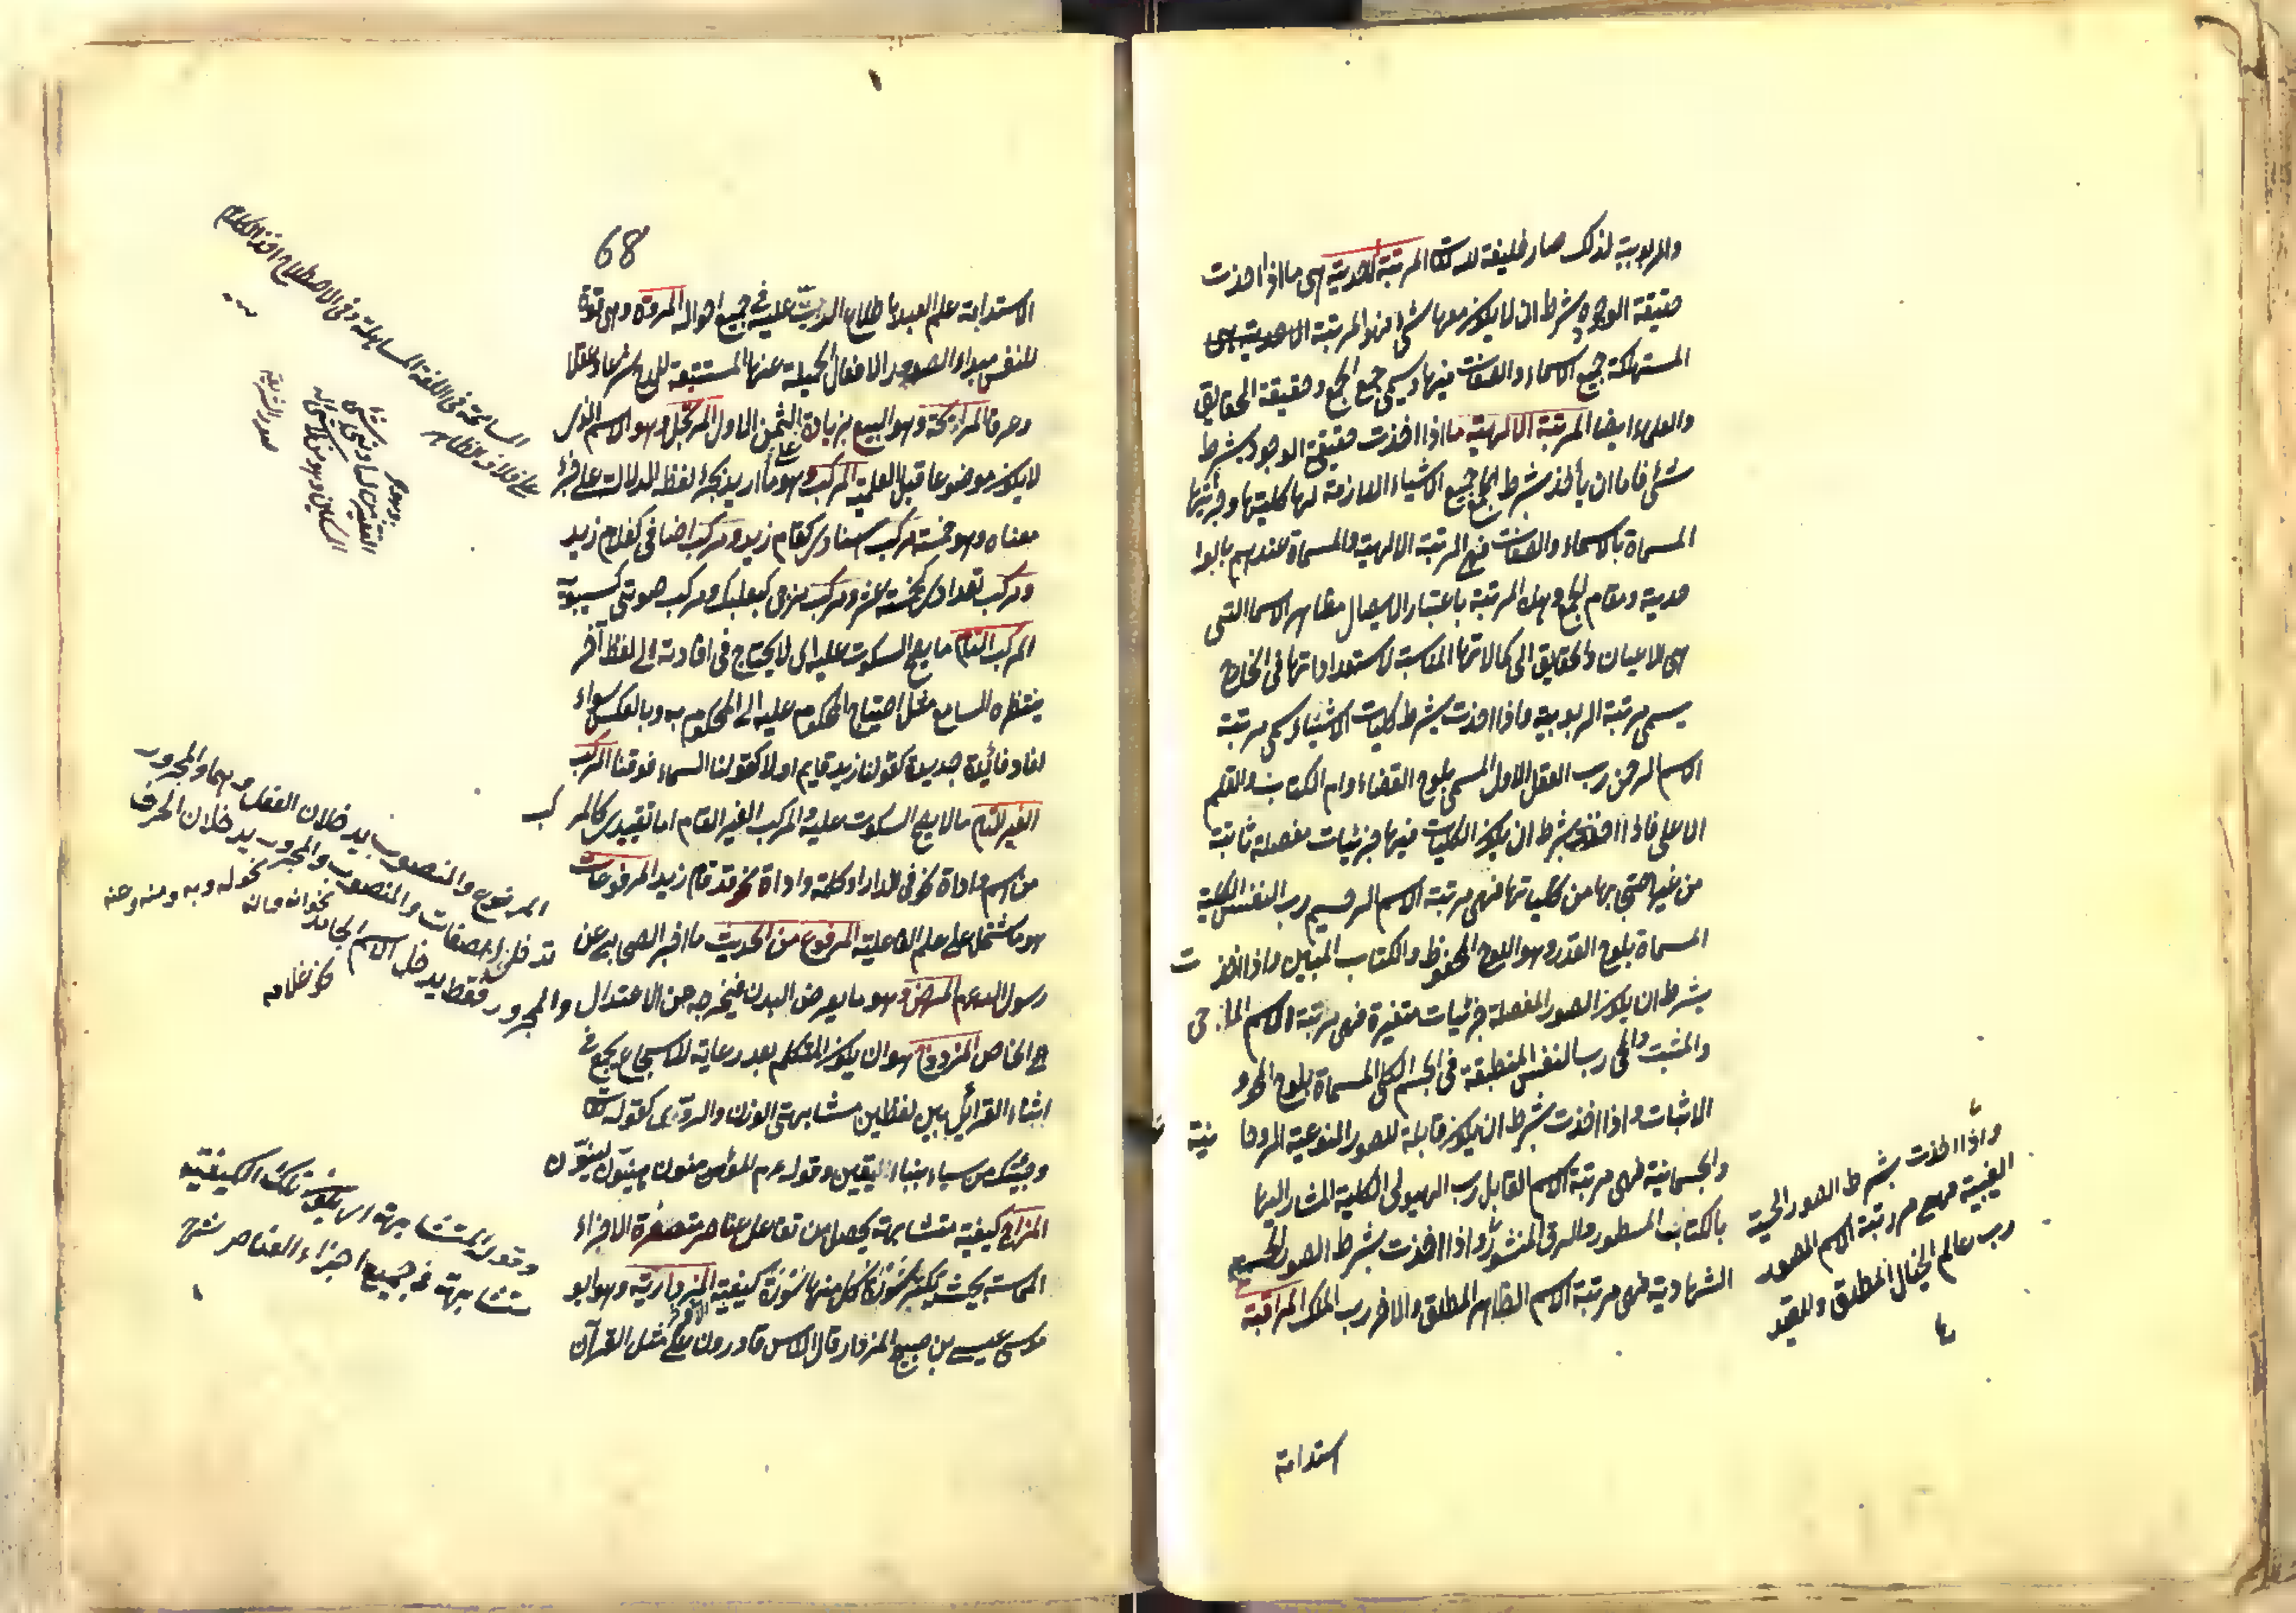 والربوبية لذلك صار خليفة لله تعالى المرتبة الاحدية هى ما اذا اخذت
حقيقة الوجود بشرط ان لا يكون معها شئ فهو المرتبة الاحدية هى
المستهلكة جميع الاسماء والصفات فيها ويسمى جمع الجمع وحقيقة الحقايق
والعماء ايضا المرتبة الالهية ما اذا اخذت حقيقة الوجود بشرط
شئ فاما ان يأخذ بشرط جميع الاشياء اللازمة لها كليتها وجزئيتها
المسماة بالاسماء والصفات فهى المرتبة الالهية والمسماة عندهم بالوا
حدية ومقام الجمع وهذه المرتبة باعتبار الايصال مظاهر الاسما التى
هى الاعيان والحقايق الى كمالاتها المناسبة لاستعداداتها فى الخارج
يسمى مرتبة الربوبية واذا اخذت بشرط كليات الاشياء يسمى مرتبة
الاسم الرحمن رب العقل الاول المسمى بلوح القضاء وام الكتاب والقلم
الاعلى فاذا اخذت بشرط ان يكون الكليات فيها جزئيات مفصلة ثابتة
من غير احتجابها من كلياتها فهى مرتبة الاسم الرحيم رب النفس الكلية
المسماة بلوح القدر وهو اللوح المحفوظ والكتاب المبين واذا اخذت
بشرط ان يكون الصور المفصلة جزئيات متغيرة فهى مرتبة الاسم الماحى
والمثبت والمحى رب النفس المنطبعة فى الجسم الكلى المسماة بلوح المحو و
الاثبات واذا اخذت بشرط ان يكون قابلة للصور النوعية الروحانية
والجسمانية فهى مرتبة الاسم القابل رب الهيولى الكلية المشار اليها
بالكتاب المسطور والرق المنشور واذا اخذت بشرط الصور الحسية
الشهادية فهى مرتبة الاسم الظاهر المطلق والاخر رب الملك المراقبة
واذا اخذت بشرط الصور الحسية
الغيبية فهى مرتبة الاسم المصور
رب عالم الخيال المطلق والمقيد
استدامة
68
الاستدامة علم العبد باطلاع الرب عليه فى جميع احواله المروة وهى قوة
للنفس مبداء لصدور الافعال الجميلة عنها المستتبعة للمدح شرعا وعقلا
وعرفا المرابحة وهو البيع بزيادة على الثمن الاول المرتجل وهو الاسم الذى
لا يكون موضوعا قبل العلمية المركب وهو ما اريد بجزء لفظه الدلالة على جزء
معناه وهو خمسة مركب اسنادى كقام زيد ومركب اضافى كغلام زيد
ومركب تعدادى كخمسة عشر ومركب مزجى كبعلبك ومركب صوتى كسيبويه
المركب التام ما يصح السكوت عليه اى لا يحتاج فى افادته الى لفظ آخر
ينتظره السامع مثل احتياج المحكوم عليه الى المحكوم به وبالعكس سواء
افاد فائدة جديدة كقولنا زيد قايم اولا كقولنا السماء فوقنا المركب
الغير التام ما لا يصح السكوت عليه المركب الغير التام اما تقييدى كالمركب
من اسم واداة نحو فى الدار او كلمة واداة نحو قد قام زيد المرفوعات
هو ما اشتمل على علم الفاعلية المرفوع من الحديث ما اخبر الصحابى عن
رسول الله عم المرض وهو ما يعرض البدن فيخرجه عن الاعتدال
الخاص المزدوج هو ان يكون المتكلم بعد رعاية للاسجاع يجمع فى
اثناء القرائن بين لفظين مشابهتى الوزن والروى كقوله تعالى
وجئتك من سباء بنباء يقين وقوله عم المؤمنون هينون لينون
المزاج كيفية متشابهة يحصل من تفاعل عناصر متصغرة الاجزاء
المماسة بحيث يكسر سورة كل منها سورة كيفية الاخر المزدارية وهو ابو
موسى عيسى بن صبيح المزدار قال الناس قادرون على مثل القرآن
المسامحة فى اللغة المساهلة وفى الاصطلاح اخذ الكلام
على خلاف الظاهر
المرفوع والمنصوب يدخلان الفعل وبهما والمجرور
المنصوب والمجرور يدخلان الحرف
نحوله وبه ومنه وعنه
والمجرور فقط يدخل الاسم الجامد
نحو غلامه
وقوله المتشابهة اى يكون تلك الكيفية
متشابهة فى جميع اجزاء العناصر شرح